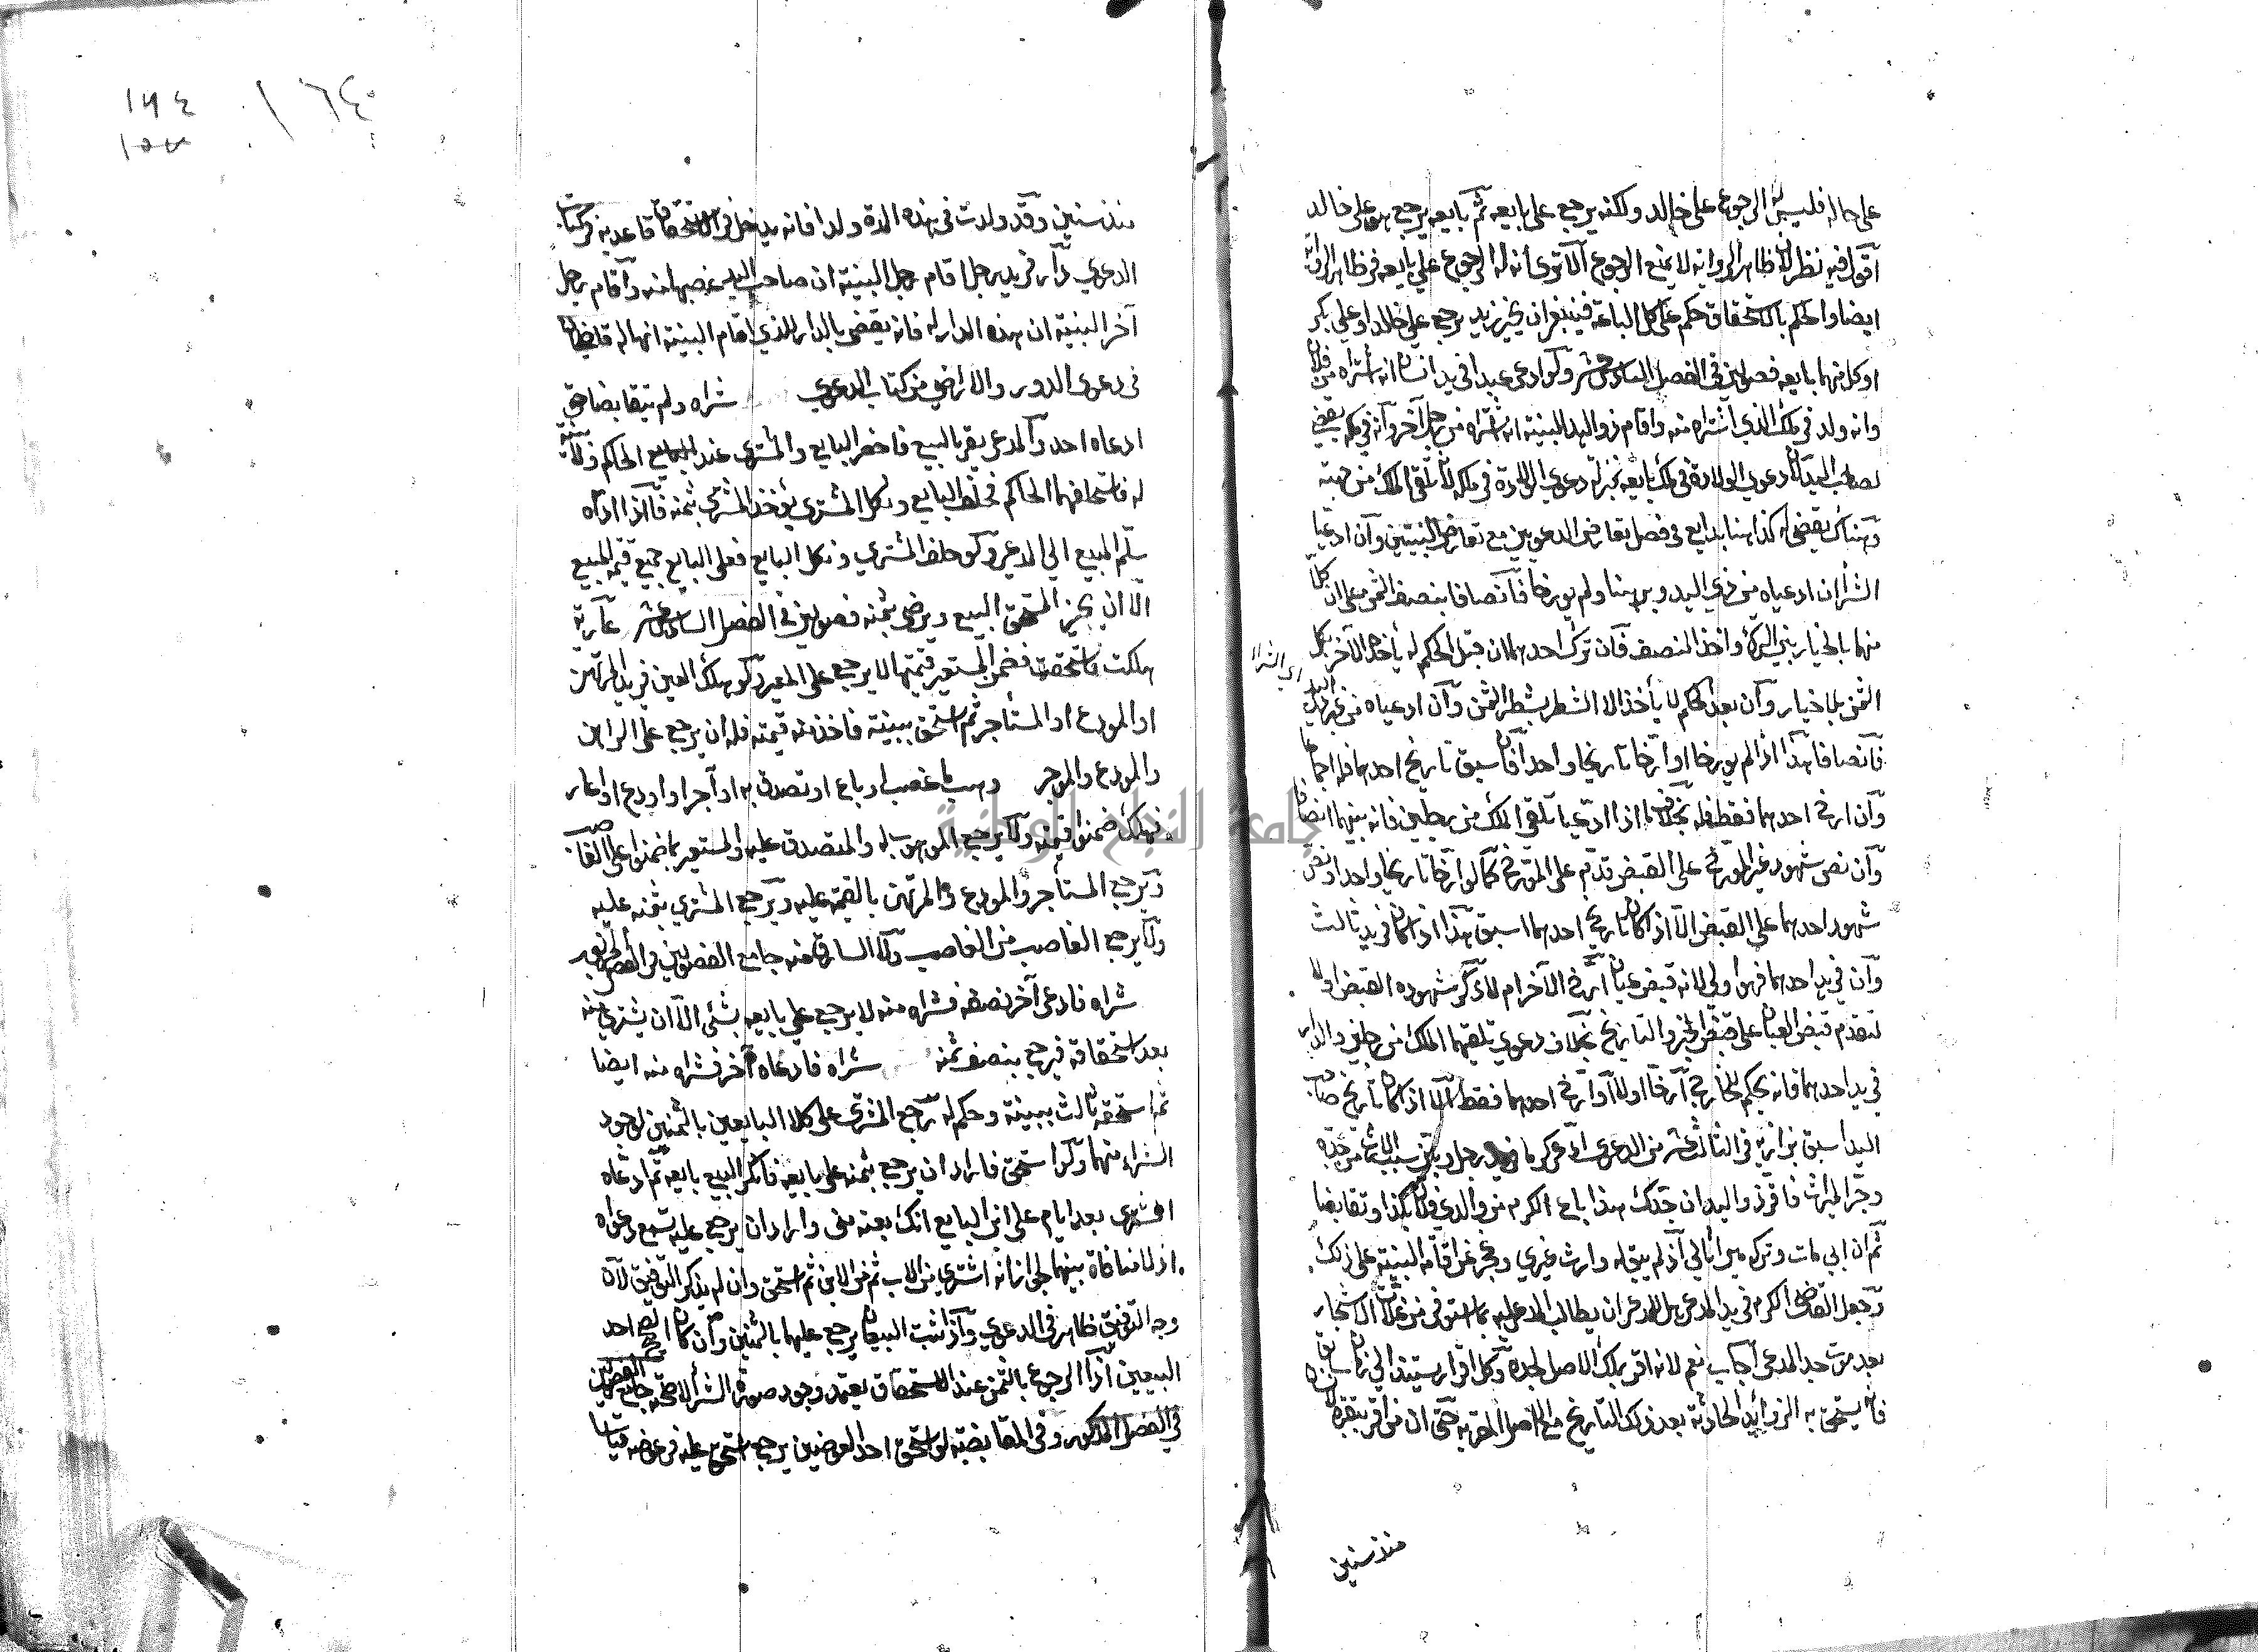 على حاله فليس له الرجوع على خالد ولكنه يرجع على بايعه ثم بايعه يرجع هو على خالد
اقول فيه نظر لان ظاهر الرواية لا يمنع الرجوع الا ترى انه له الرجوع على بايعه في ظاهر الرواية
ايضا والحكم بالاستحقاق حكم على كل الباعة فينبغي ان يخير زيد يرجع على خالد او على بكر
او كل منهما بايعه فصولين في الفصل السادس عشر ولو ادعى عبدا في يد انسان انه شراه من فلان
وانه ولد في ملك الذي اشتراه منه واقام ذو اليد البينة انه شراه من رجل آخر وانه في ملكه يقضي
لصاحب اليد لان دعوى الولادة في ملك بايعه بمنزلة دعوى الولادة في ملكه لانه تلقى الملك من جهته
وهناك يقضى له كذا هنا بدايع في فصل تعارض الدعوتين مع تعارض البينتين وان ادعيا
الشراان ادعياه من ذي اليد وبرهنا ولم يورخا فانصافا بنصف الثمن على ان كلا
منهما بالخيار بين الترك واخذ النصف فان ترك احدهما لان قبل الحكم له يأخذ الآخر بكل
الثمن بلا خيار وان بعد الحكم لا يأخذ الا الشطر بشطر الثمن وان ادعياه من غير ذي اليد
اي الشراء
فانصافا هذا اذا لم يورخا او ارخا تاريخا واحدا فان سبق تاريخ احدهما فله اجماعا
وان ارخ احدهما فقط فله بخلاف ما اذا ادعيا تلقي الملك من رجلين فانه بينهما انصافا
وان نص شهود غير المورخ على القبض قدم على المورخ كما لو ارخا تاريخا واحدا ونص
شهود احدهما على القبض الا اذا كان تاريخ احدهما اسبق هذا اذا كان في يد ثالث
وان في يد احدهما فهو اولى لانه قبض عيان ارخ الآخر ام لا ذكر شهوده القبض اولا
لتقدم قبض العيان على قبض الخبر والتاريخ بخلاف دعوى تلقيهما الملك من رجلين والدار
في يد احدهما فانه يحكم للخارج ارخا اولا او ارخ احدهما فقط الا اذا كان تاريخ صاحب
اليد اسبق بزازية في الثالث عشر من الدعوى ادعى كرما في يد رجل وبين سبب الارث من جده
وجر الميراث فاقر ذو اليد ان جدك هذا باع الكرم من والدي فلان بكذا وتقابضا
ثم ان ابي مات وتركه ميراثا لي اذ لم يبق له وارث غيري وعجز عن اقامة البينة على ذلك
وجعل القاضي الكرم في يد المدعي هل للمدعي ان يطالب المدعى عليه بما استوفى من غلات الاشجار
بعد موت جد المدعي اجاب نعم لانه اقر بملك الاصل لجده وكل اقرار يستند الى زمان سابق
فانه يستحق به الزوايد الحادثة بعد ذلك التاريخ مع الاصل المقر به حتى ان من اقر ببقرة لفلان
منذ سنين
١٦٤
١٦٤
١٥٧
منذ سنين وقد ولدت في هذه المدة ولدا فانه يدخل في الاستحقاق قاعدية في كتاب
الدعوى دار في يد رجل اقام رجل البينة ان صاحب اليد غصبها منه واقام رجل
آخر البينة ان هذه الدار له فانه يقضى بالدار للذي اقام البينة انها له قاضيخان
في دعوى الدور والاراضي من كتاب الدعوى شراه ولم يتقابضا حتى
ادعاه احد والمدعي يقر بالبيع فاحضر البايع والمشتري عند الحاكم ولا بينة
له فاستحلفهما الحاكم فحلف البايع ونكل المشتري يؤخذ المشتري بثمنه فاذا اداه
سلم المبيع الى المدعي ولو حلف المشتري ونكل البايع فعلى البايع جميع قيمة المبيع
الا ان يجيز المستحق البيع ويرضى بثمنه فصولين في الفصل السادس عشر عارية
هلكت فاستحقت فضمن المستعير قيمتها لا يرجع على المعير ولو هلك العين في يد المرتهن
او المودع او المستأجر ثم استحق ببينة فاخذ منه قيمته فله ان يرجع على الراهن
والمودع والموجر وهب ما غصب او باع او تصدق به او آجر او اودع او اعار
فهلك ضمنوا قيمته ولا يرجع الموهوب له والمتصدق عليه والمستعير بما ضمنوا على الغاصب
ويرجع المستأجر والمودع والمرتهن بالقيمة عليه ويرجع المشتري بثمنه عليه
ولا يرجع الغاصب من الغاصب ولا السارق منه جامع الفصولين في الفصل
شراه فادعى آخر نصفه فشراه منه لا يرجع على بايعه بشئ الا ان يشتري منه
بعد استحقاقه فيرجع بنصف ثمنه شراه فادعاه آخر فشراه منه ايضا
ثم استحقه ثالث ببينة وحكم له رجع المشتري على كلا البايعين بالثمنين لوجود
الشراء منهما ولو استحق فاراد ان يرجع بثمنه على بايعه فانكر البيع بايعه ثم ادعاه
المشتري بعد ايام على ابن البايع انك بعته مني واراد ان يرجع عليه تسمع دعواه
اذ لا منافاة بينهما لجواز انه اشترى من الاب ثم من الابن ثم استحق وان لم يذكر التوفيق لان
وجه التوفيق ظاهر في الدعوى واذا ثبت البيعان يرجع عليهما بالثمنين وان كان الصحيح احد
البيعين اذ الرجوع بالثمن عند الاستحقاق يعتمد وجود صورة الشراء لا صحته جامع الفصولين
في الفصل المذكور وفي المقايضة لو استحق احد العوضين يرجع المستحق عليه في عوضه قياسا
جامعة النجاح الوطنية